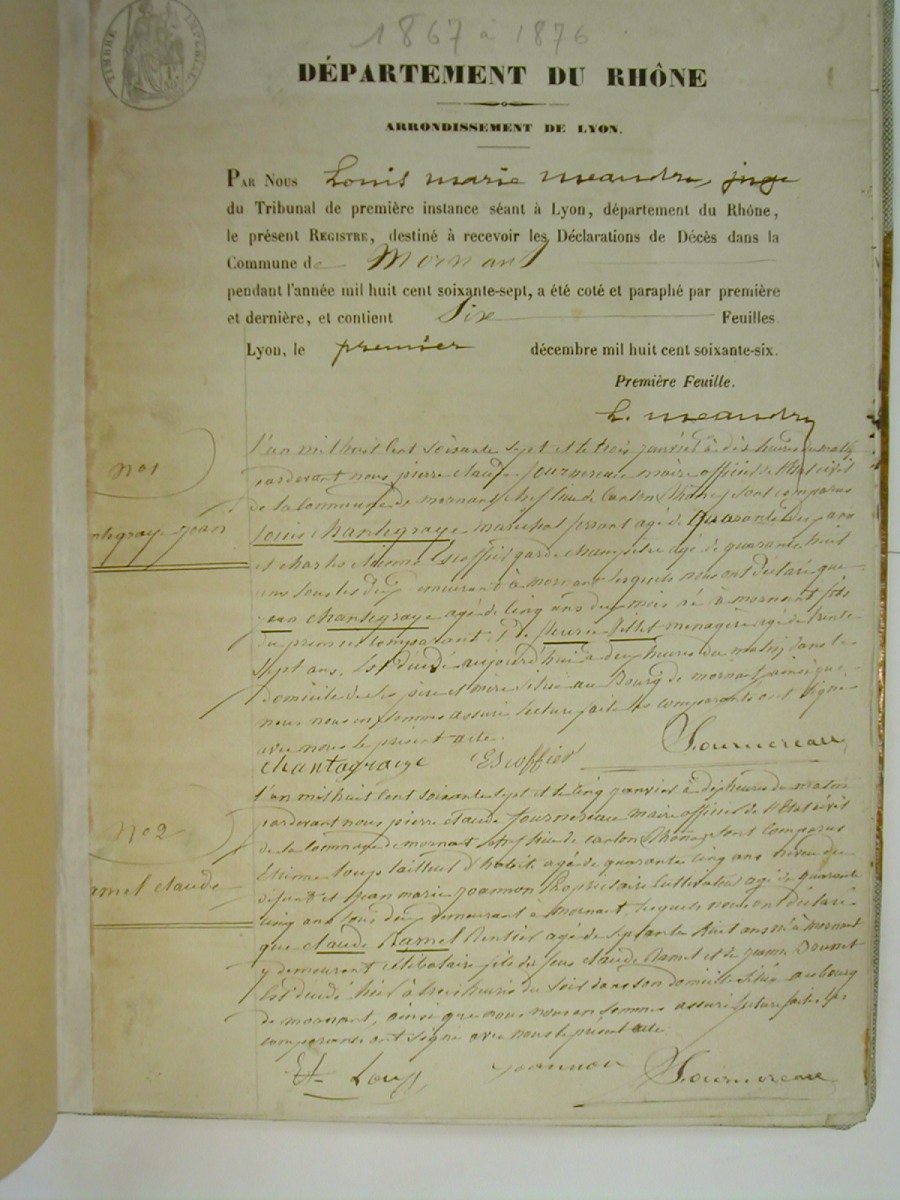 1867 à 1876
TIMBRE IMPÉRIAL
DÉPARTEMENT DU RHÔNE
ARRONDISSEMENT DE LYON.
PAR NOUS Louis marie meandre, juge
du Tribunal de première instance séant à Lyon, département du Rhône,
le présent REGISTRE, destiné à recevoir les Déclarations de Décès dans la
Commune de Mornant
pendant l'année mil huit cent soixante-sept, a été coté et paraphé par première
et dernière, et contient Six Feuilles
Lyon, le premier décembre mil huit cent soixante-six.
Première Feuille.
L. meandre
No 1
ntegraye jean
l'an mil huit cent soixante sept et le trois janvier à dix heures du matin
pardevant nous pierre claude fournereau maire officier de l'Etat civil
de la Commune de mornant chef lieu de Canton (Rhône) sont comparus
Louis Chantegraye maréchal ferrant agé de quarante deux ans
et charles etienne Escoffier garde champêtre agé de quarante huit
ans tous les deux demeurant à mornant lesquels nous ont déclaré que
jean chantegraye agé de cinq ans deux mois né à mornant fils
du premier comparant et de fleurie fillet menagère agée de trente
sept ans, Est décédé aujourd'hui à deux heures du matin dans le
domicile de ses père et mère situé au Bourg de mornant ainsi que
nous nous en sommes assuré, lecture faite les comparants ont signé
avec nous le présent acte.
chantegraye Escoffier Fournereau
No 2
amel claude
l'an mil huit cent soixante sept et le cinq janvier à dix heures du matin
pardevant nous pierre claude fournereau maire officier de l'Etat civil
de la Commune de mornant chef lieu de canton (Rhône) sont Comparus
Etienne Loup tailleur d'habits agé de quarante cinq ans neveu du
défunt et jean marie joannon Propriétaire Cultivateur agé de quarante
cinq ans tous deux demeurant à mornant, lesquels nous ont déclaré
que claude Ramel Rentier agé de septante huit ans né à Mornant
y demeurant célibataire fils des feus claude Ramel et de jeanne Brunet
Est décédé hier à trois heures du soir dans son domicile situé au bourg
de mornant, ainsi que nous nous en sommes assuré lecture faite les
comparants ont signé avec nous le présent acte
Et Loup joannon Fournereau